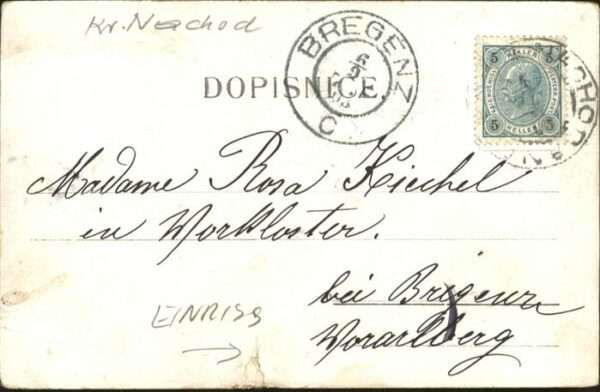 Kr. Nachod
BREGENZ
6/2
C
DOPISNICE.
5 5
HELLER
5 5
NACHOD
Madame Rosa Kiechel
in Workloster.
bei Bregenz
Vorarlberg
EINRISS